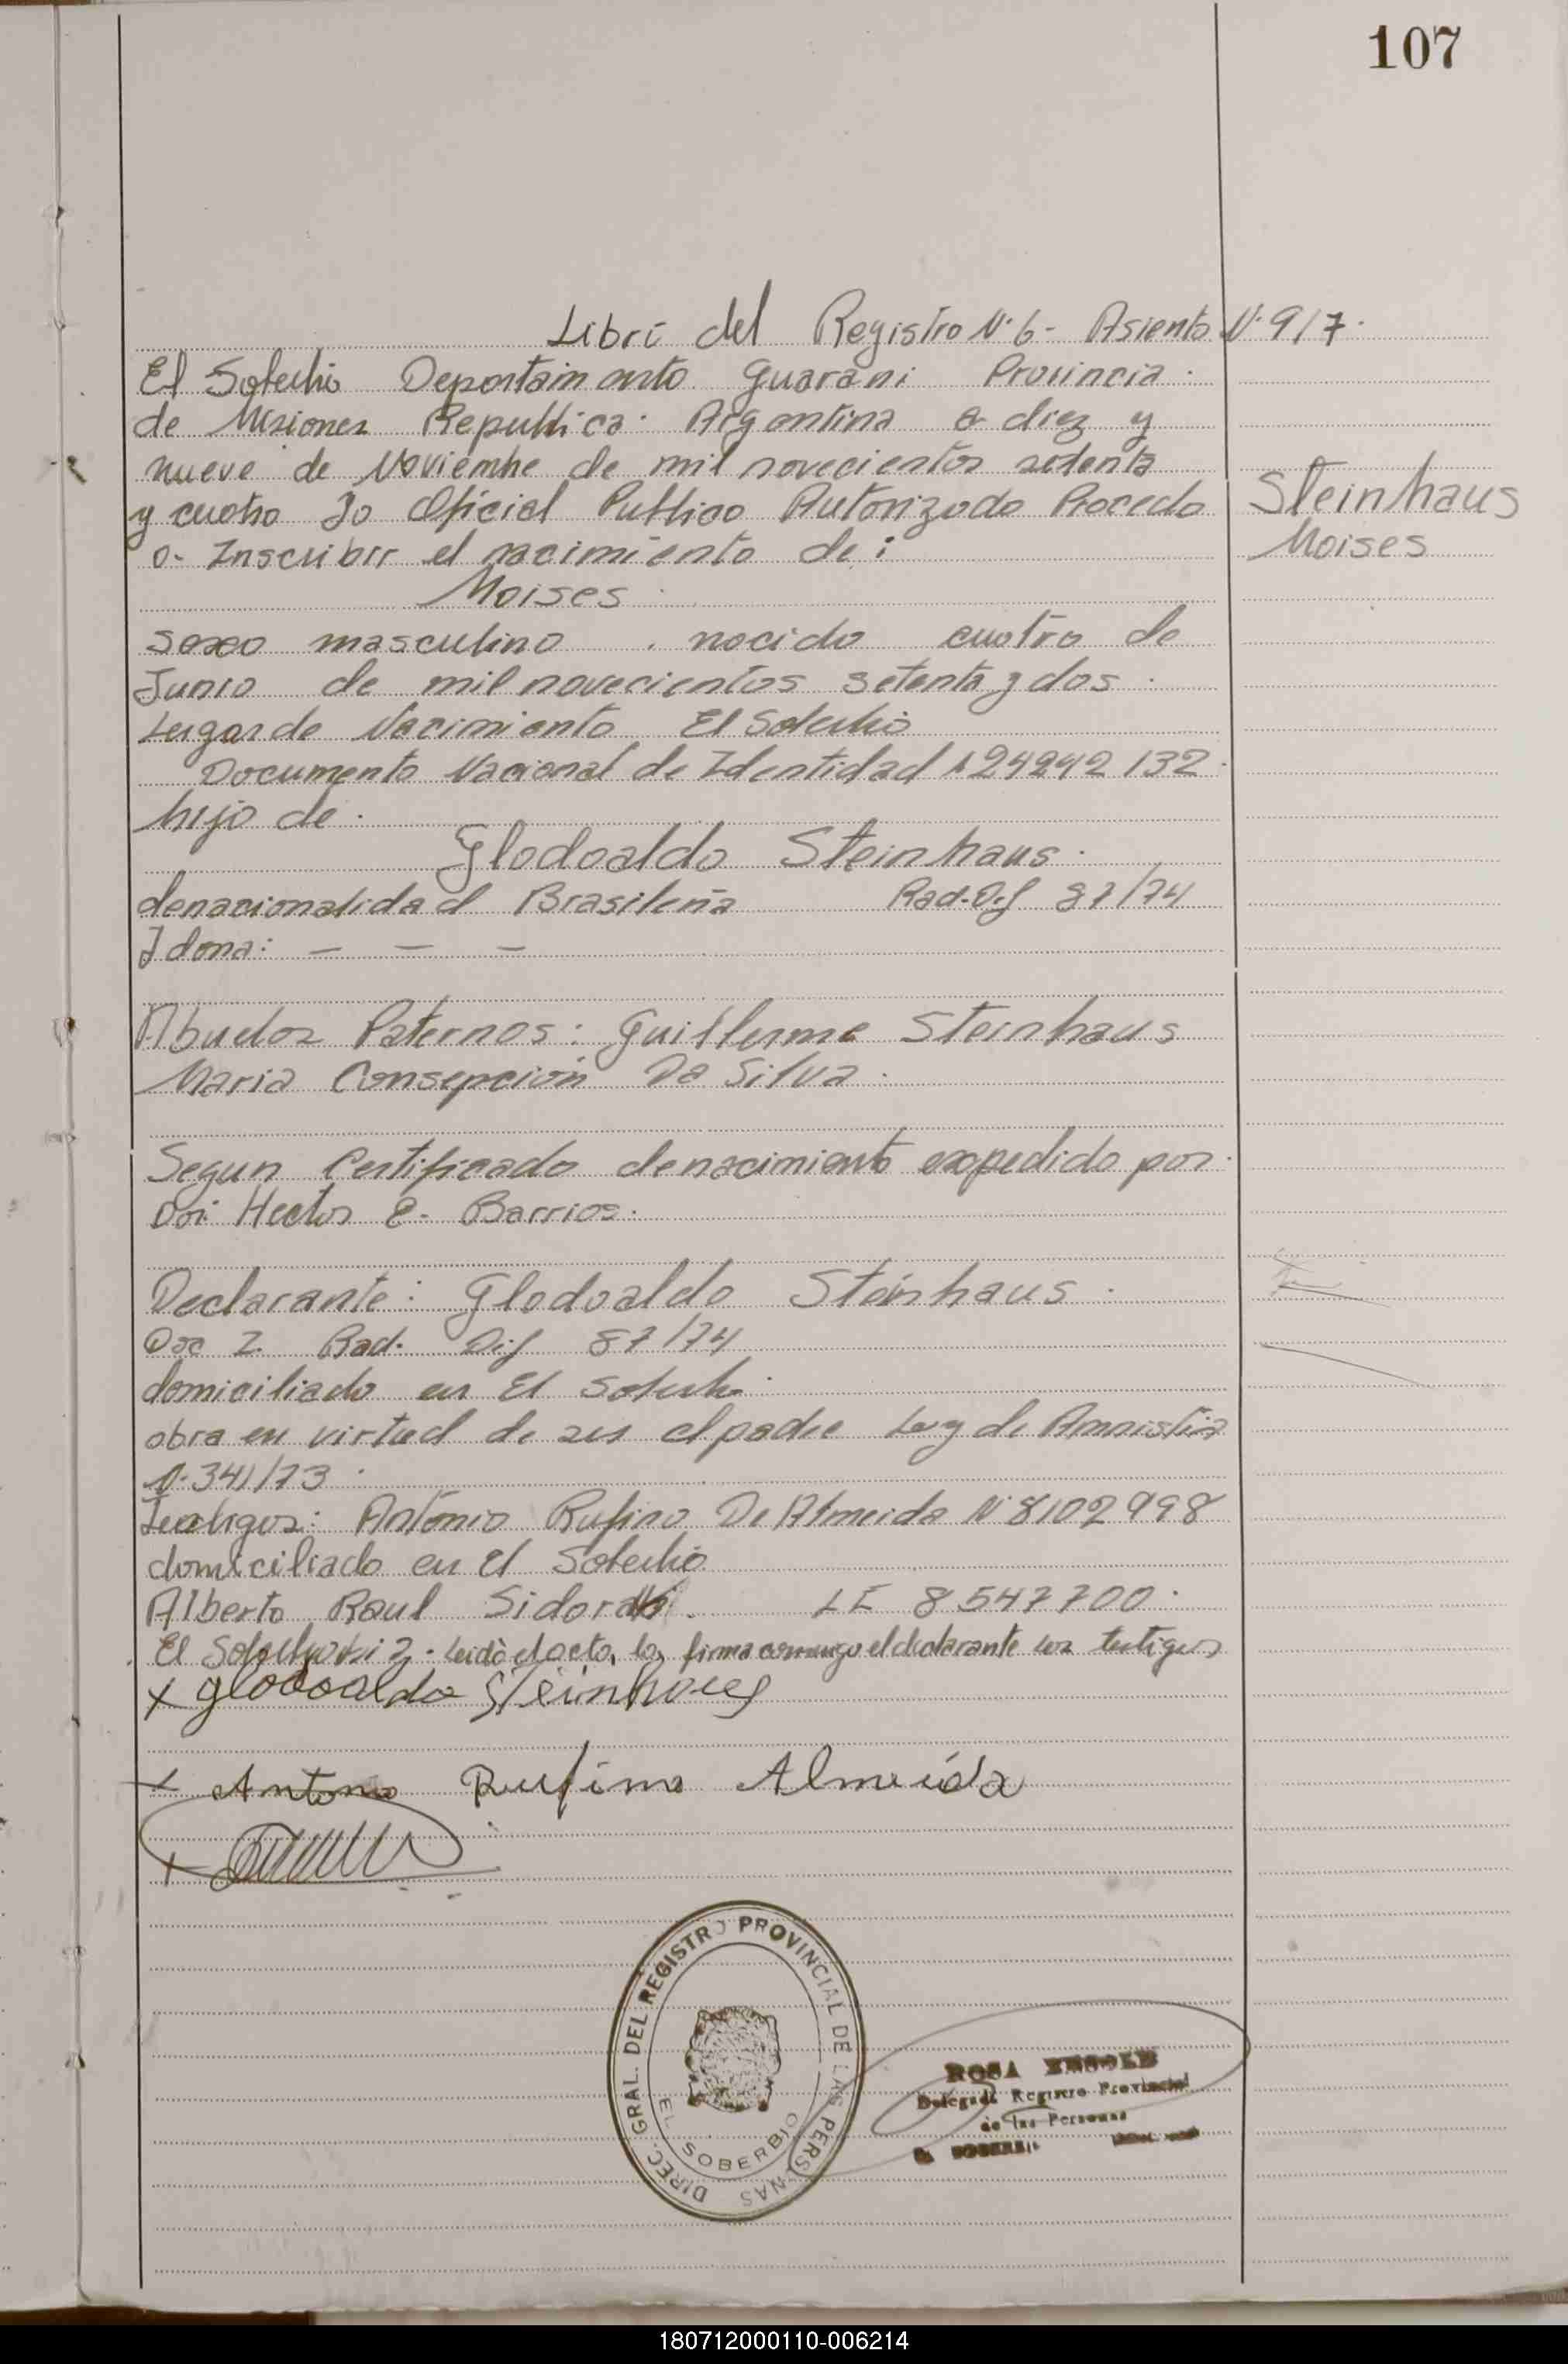 107
Libri del Registro N. 6 - Asiento N. 917.
El Soberbio Departamento Guarani Provincia
de Misiones Republica Argentina a diez y
nueve de Noviembre de mil novecientos setenta
y cuatro Yo Oficial Publico Autorizado Procedo
a Inscribir el nacimiento de:
Steinhaus
Moises
Moises
sexo masculino . nacido cuatro de
Junio de mil novecientos setenta y dos.
Lugar de Nacimiento El Soberbio
Documento Nacional de Identidad N 24242132
hijo de.
Glodoaldo Steinhaus.
de nacionalidad Brasileña Rad. Dif 87/74
y dona: - - -
Abuelos Paternos: Guillerme Steinhaus
Maria Consepcion Da Silva.
Segun Certificado de nacimiento expedido por
Don Hector E. Barrios.
Declarante: Glodoaldo Steinhaus.
Doc I. Rad. Dif 87/74
domiciliado en El Soberbio.
obra en virtud de ser el padre Ley de Amnistia
N. 341/73.
Testigos: Antonio Rufino De Almeida N 8102998
domiciliado en El Soberbio
Alberto Raul LE 8547700.
El Leido el acta, la firma conmigo el declarante los testigos
x Glodoaldo Steinhaus
x Antonio Rufino Almeida
x
DIREC. GRAL. DEL REGISTRO PROVINCIAL DE LAS PERSONAS
EL SOBERBIO
ROSA
Delegada Registro Provincial
de las Personas
EL SOBERBIO
180712000110-006214